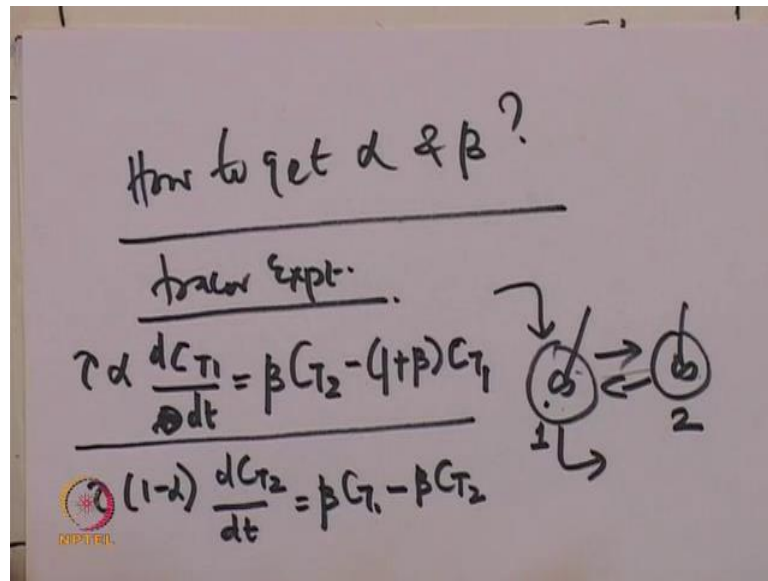 How to get α & β?
tracer Expt.
τα dC_T1/dt = βC_T2 - (1+β)C_T1
1 2
τ(1-α) dC_T2/dt = βC_T1 - βC_T2
NPTEL